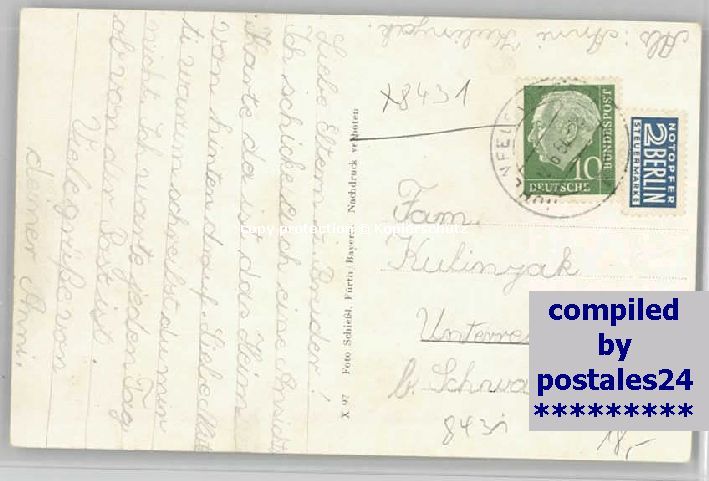 Abs: Anni Kulinyak.
Liebe Eltern u. Brüder!
Ich schicke euch eine Ansicht
Karte da ist das Heim
von hinten drauf. Liebe Mut
ti warum schreibst du mir
nicht. Ich warte jeden Tag
ob von dir Post ist.
Viele grüße von
deiner Anni.
X 97 Foto Schießl, Fürth/Bayern Nachdruck verboten
copy-protection Kopierschutz
x8431
10
DEUTSCHE BUNDESPOST
NOTOPFER
2 BERLIN
STEUERMARKE
Fam.
Kulinyak
b. Schwa
8431
18,-
compiled
by
postales24
*********